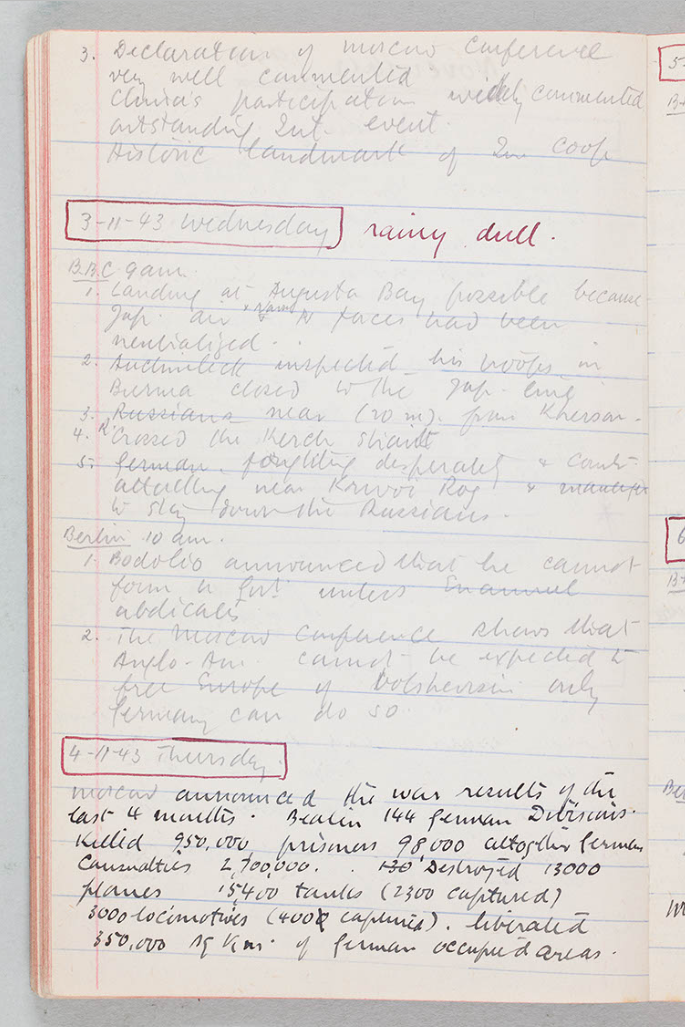 3. Declaration of Moscow Conference
very well commented
China's participation commented
outstanding Int. event.
Historic landmark of Coop
3-11-43 Wednesday rainy dull.
B.B.C 9am.
1. Landing at Augusta Bay possible because
Jap. air & Naval forces had been
neutralized.
2. Auchinleck inspected his troops in
Burma closed to the Jap. line
3. Russians near (20 m). from Kherson.
4. R. Crossed the Kerch straits
5. German. fighting desperately & 
attacking near Krivoi Rog &
to slow down the Russians.
Berlin 10 am.
1. Bodolio announced that he cannot
form a Govt. unless Emanuel
abdicates
2. The Moscow Conference shows that
Anglo-Am. cannot be expected to
free Europe of bolshevism only
Germany can do so.
4-11-43 Thursday.
Moscow announced the war results of the
last 4 months. Beaten 144 German Divisions.
Killed 950,000, prisoners 98000 altogether German
Causualties 2,700,000. . 130 Destroyed 13000
planes 15400 tanks (2300 captured)
3000 locomotives (400 captured). liberated
350,000 sq Km. of German occupied areas.
5-
B
6
B
Be